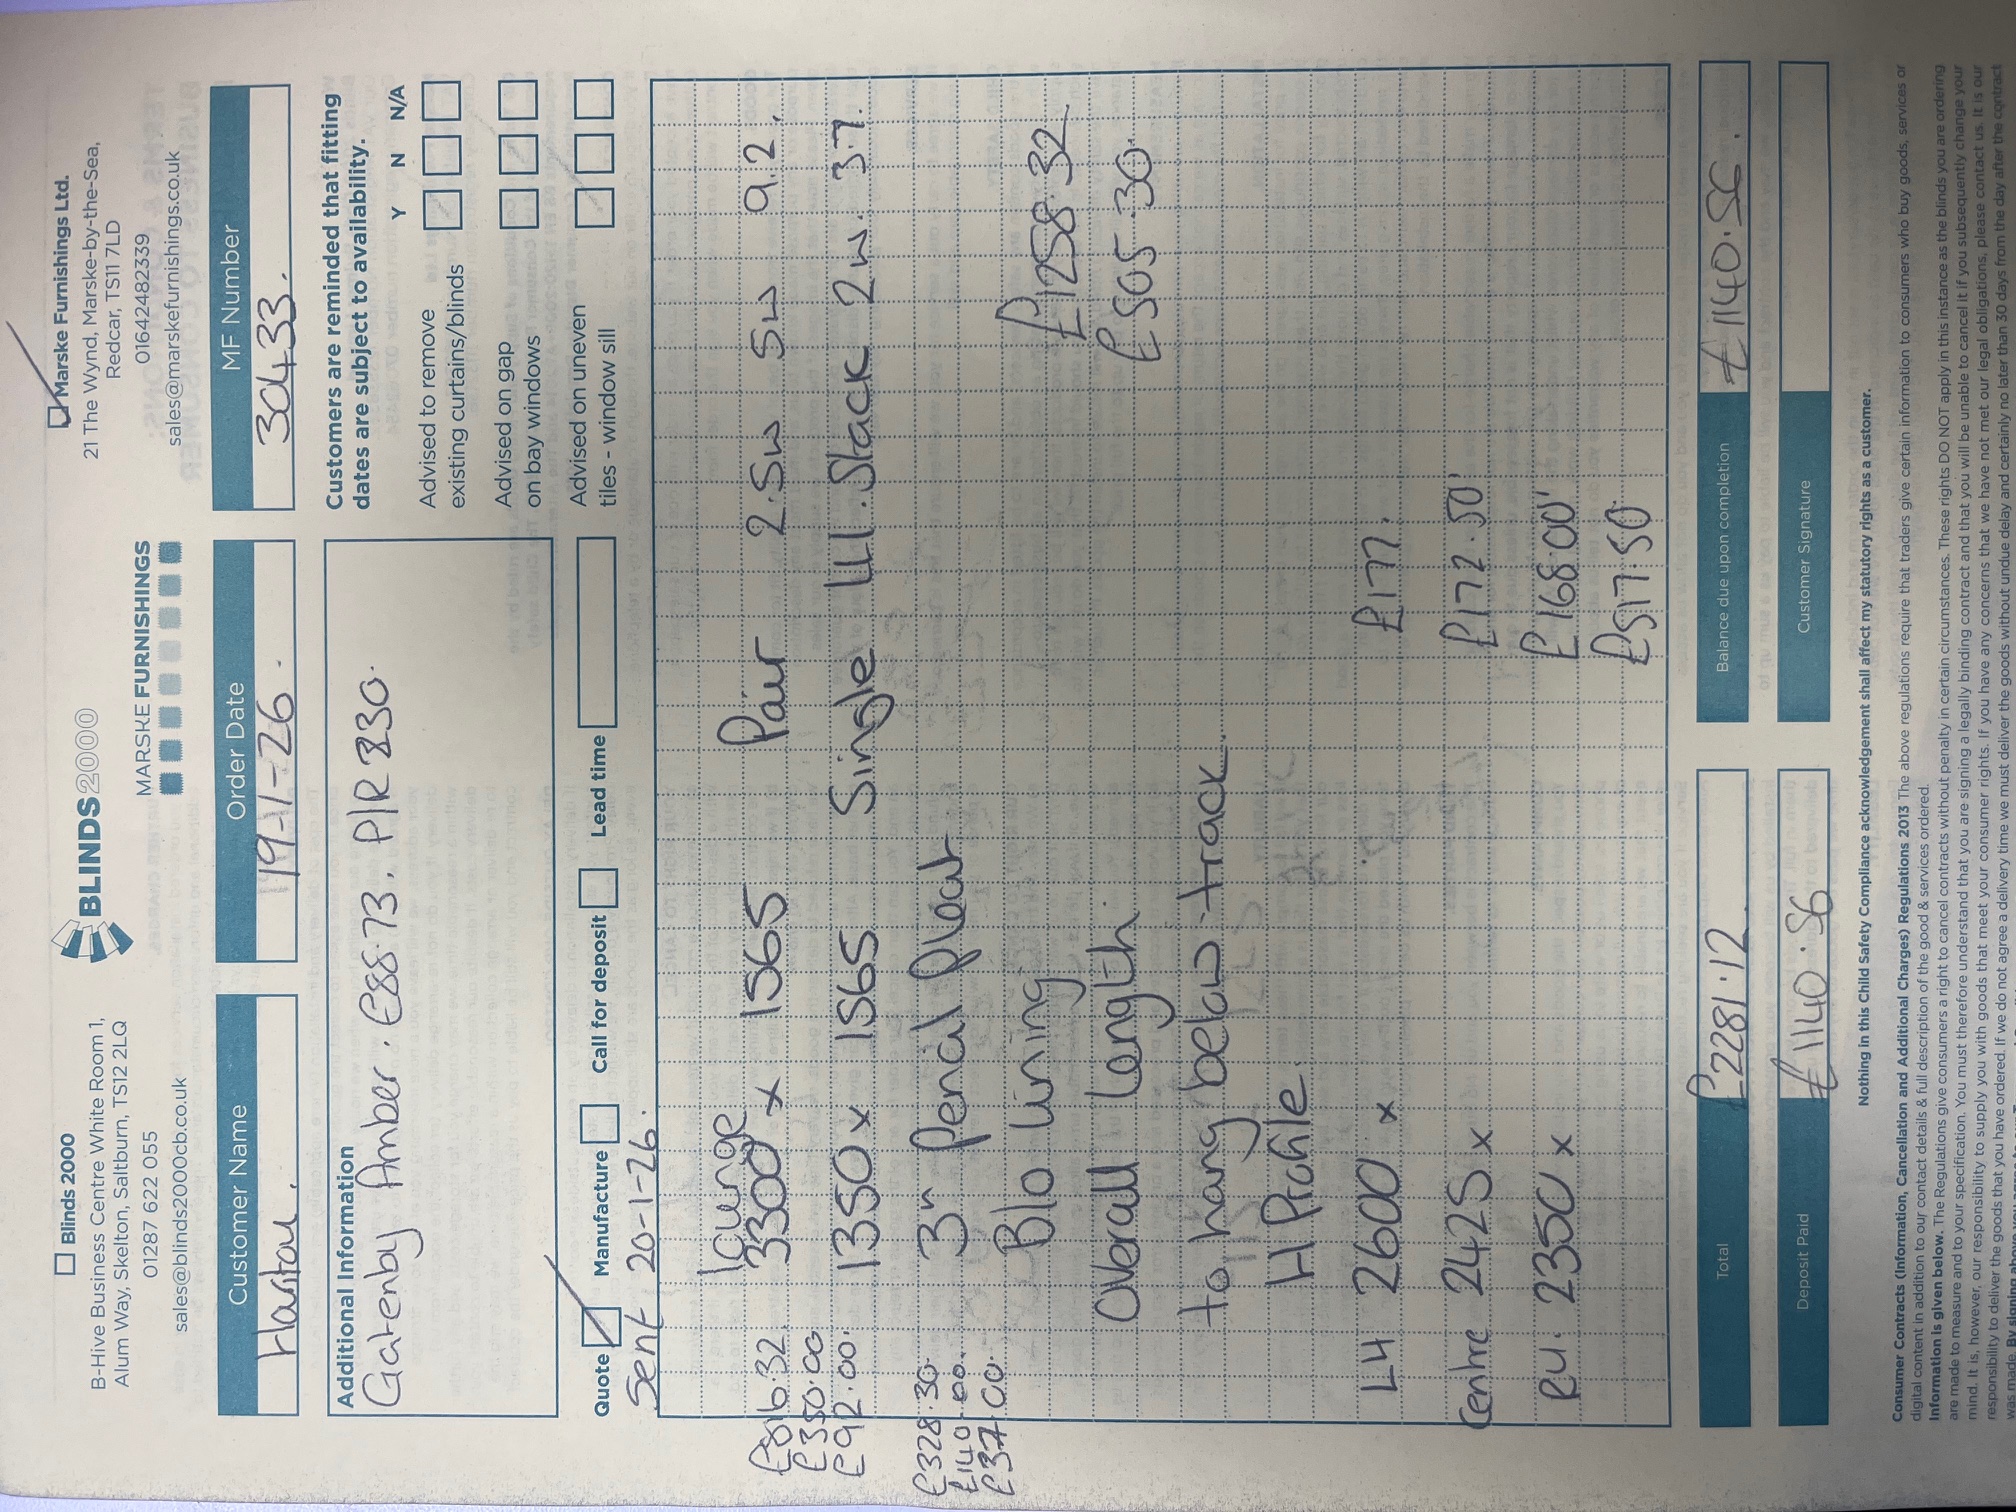 Blinds 2000
B-Hive Business Centre White Room 1,
Alum Way, Skelton, Saltburn, TS12 2LQ
01287 622 055
sales@blinds2000cb.co.uk
BLINDS2000
MARSKE FURNISHINGS
Marske Furnishings Ltd.
21 The Wynd, Marske-by-the-Sea,
Redcar, TS11 7LD
01642482339
sales@marskefurnishings.co.uk
Customer Name
Order Date
19-1-26.
MF Number
30433.
Additional Information
Gatenby Amber. £88.73. P/R 230.
Customers are reminded that fitting
dates are subject to availability.
Y N N/A
Advised to remove
existing curtains/blinds
Advised on gap
on bay windows
Advised on uneven
tiles - window sill
Quote Manufacture Call for deposit Lead time
Sent 20-1-26.
lounge
£816.32. 3300 x 1565 Pair 2.5w 5w 9.2.
£350.00
£92.00. 1350 x 1565 Single LH. Stack 2w. 3.7.
£328.30. 3" Pencil Pleat
£140.00.
£37.00. Blo lining £1258.32
Overall length. £505.30.
to hang below track.
H Profile.
LH 2600 x £177.
Centre 2425 x £172.50
RH. 2350 x £168.00
£517.50
Total
£2281.12.
Balance due upon completion
£1140.56.
Deposit Paid
£1140.56
Customer Signature
Nothing in this Child Safety Compliance acknowledgement shall affect my statutory rights as a customer.
Consumer Contracts (Information, Cancellation and Additional Charges) Regulations 2013 The above regulations require that traders give certain information to consumers who buy goods, services or
digital content in addition to our contact details & full description of the good & services ordered.
Information is given below. The Regulations give consumers a right to cancel contracts without penalty in certain circumstances. These rights DO NOT apply in this instance as the blinds you are ordering
are made to measure and to your specification. You must therefore understand that you are signing a legally binding contract and that you will be unable to cancel it if you subsequently change your
mind. It is, however, our responsibility to supply you with goods that meet your consumer rights. If you have any concerns that we have not met our legal obligations, please contact us. It is our
responsibility to deliver the goods that you have ordered. If we do not agree a delivery time we must deliver the goods without undue delay and certainly no later than 30 days from the day after the contract
was made. By signing above